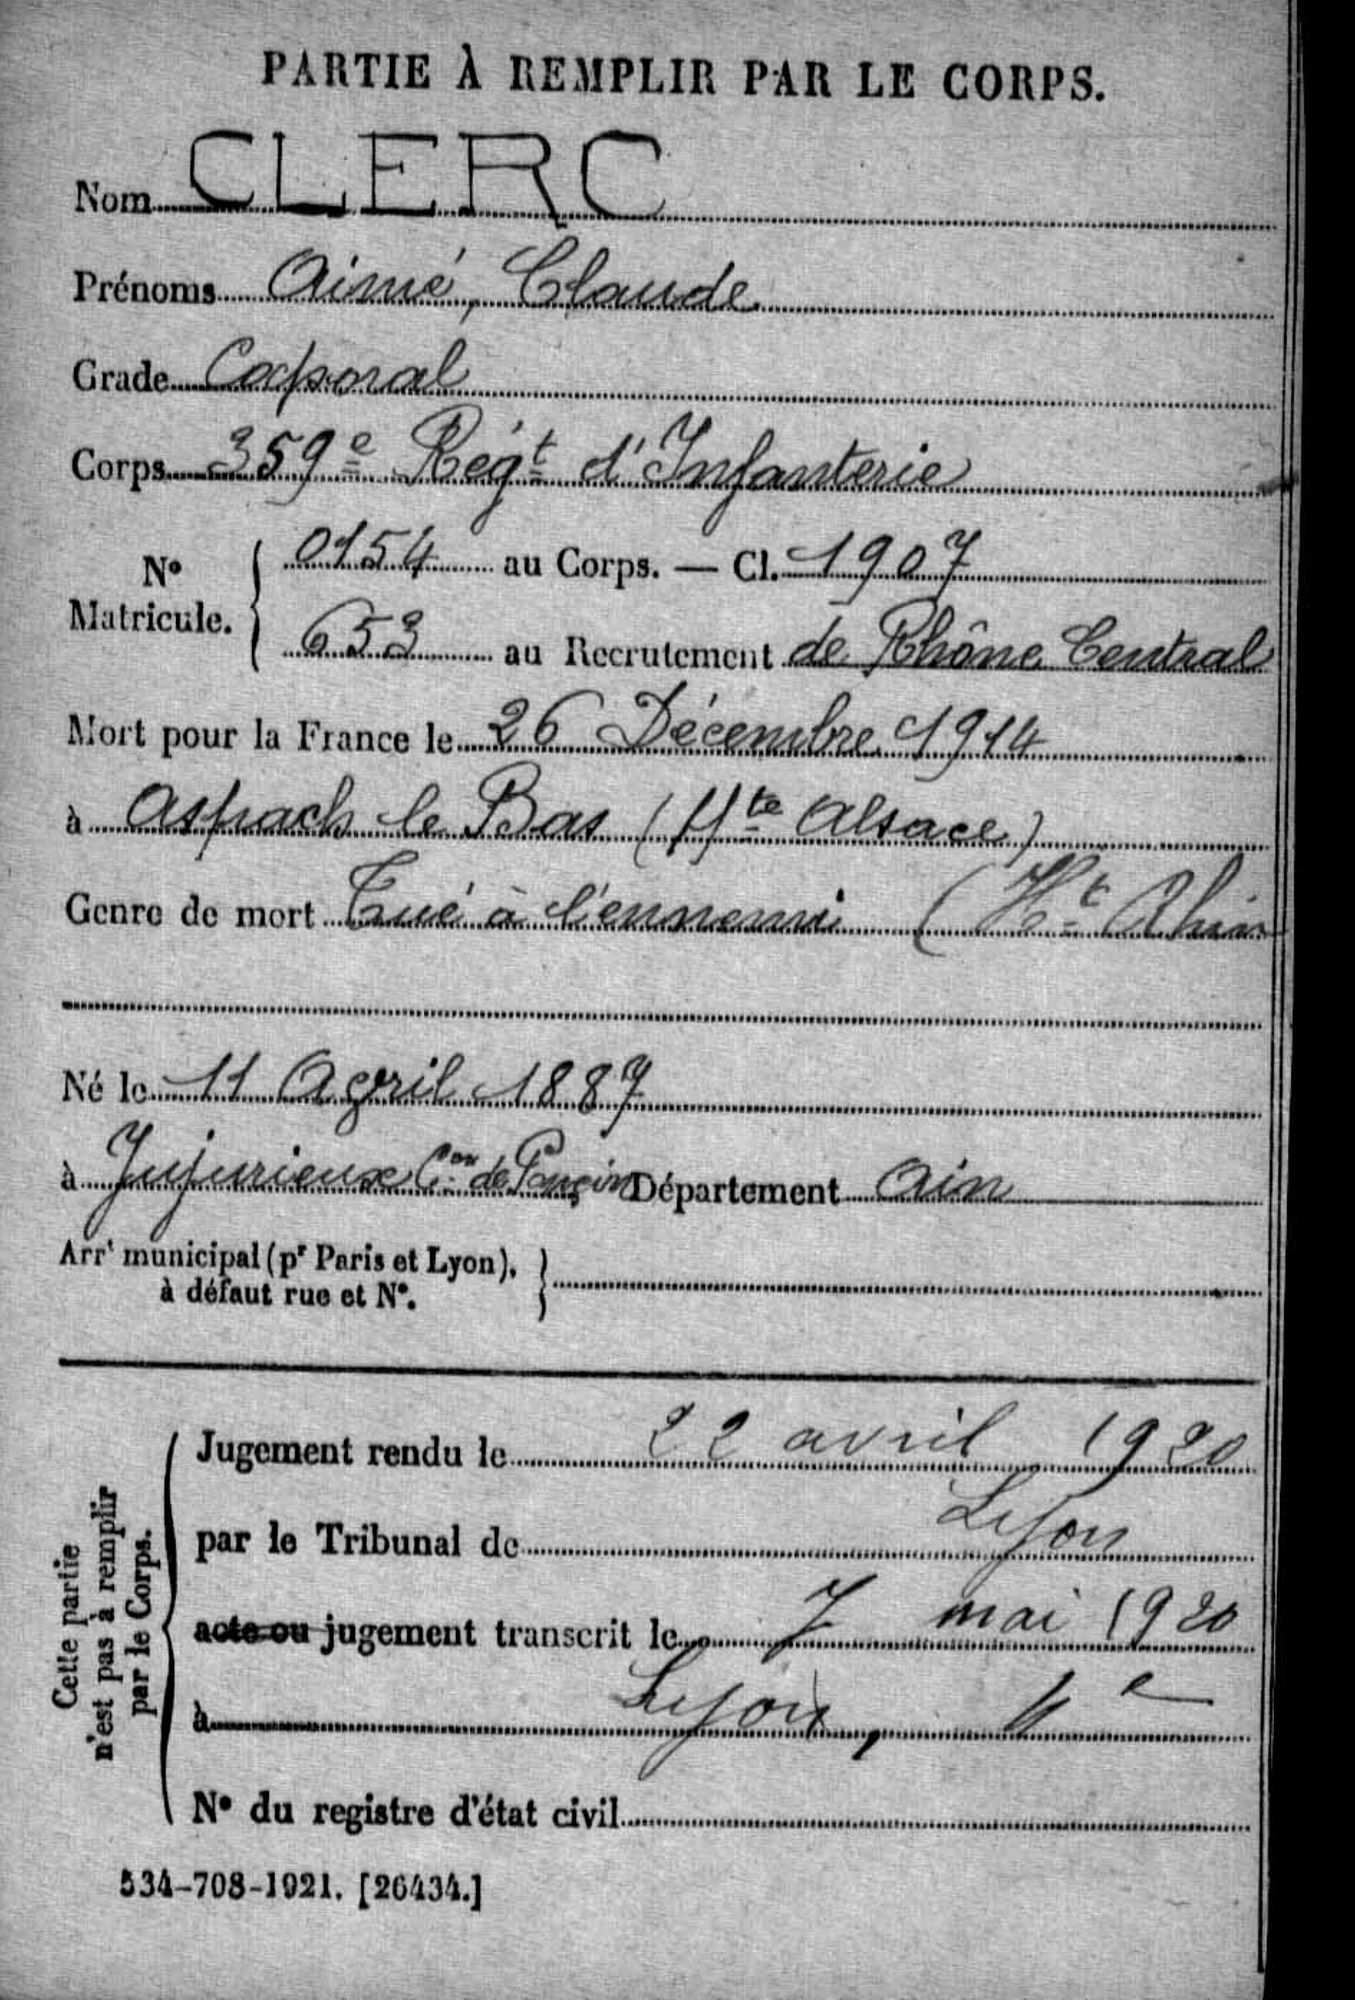 PARTIE À REMPLIR PAR LE CORPS.
Nom CLERC
Prénoms Aimé, Claude
Grade Caporal
Corps 359e Régt d'Infanterie
No Matricule. { 0154 au Corps. — Cl. 1907
653 au Recrutement de Rhône Central
Mort pour la France le 26 Décembre 1914
à Aspach le Bas (Hte Alsace)
Genre de mort Tué à l'ennemi (Ht Rhin
Né le 11 Avril 1887
à Jujurieux Con de Poncin Département Ain
Arrt municipal (pr Paris et Lyon),
à défaut rue et No.
Cette partie
n'est pas à remplir
par le Corps.
Jugement rendu le 22 avril 1920
par le Tribunal de Lyon
acte ou jugement transcrit le 7 mai 1920
à Lyon, 4e
No du registre d'état civil
534-708-1921. [26434.]